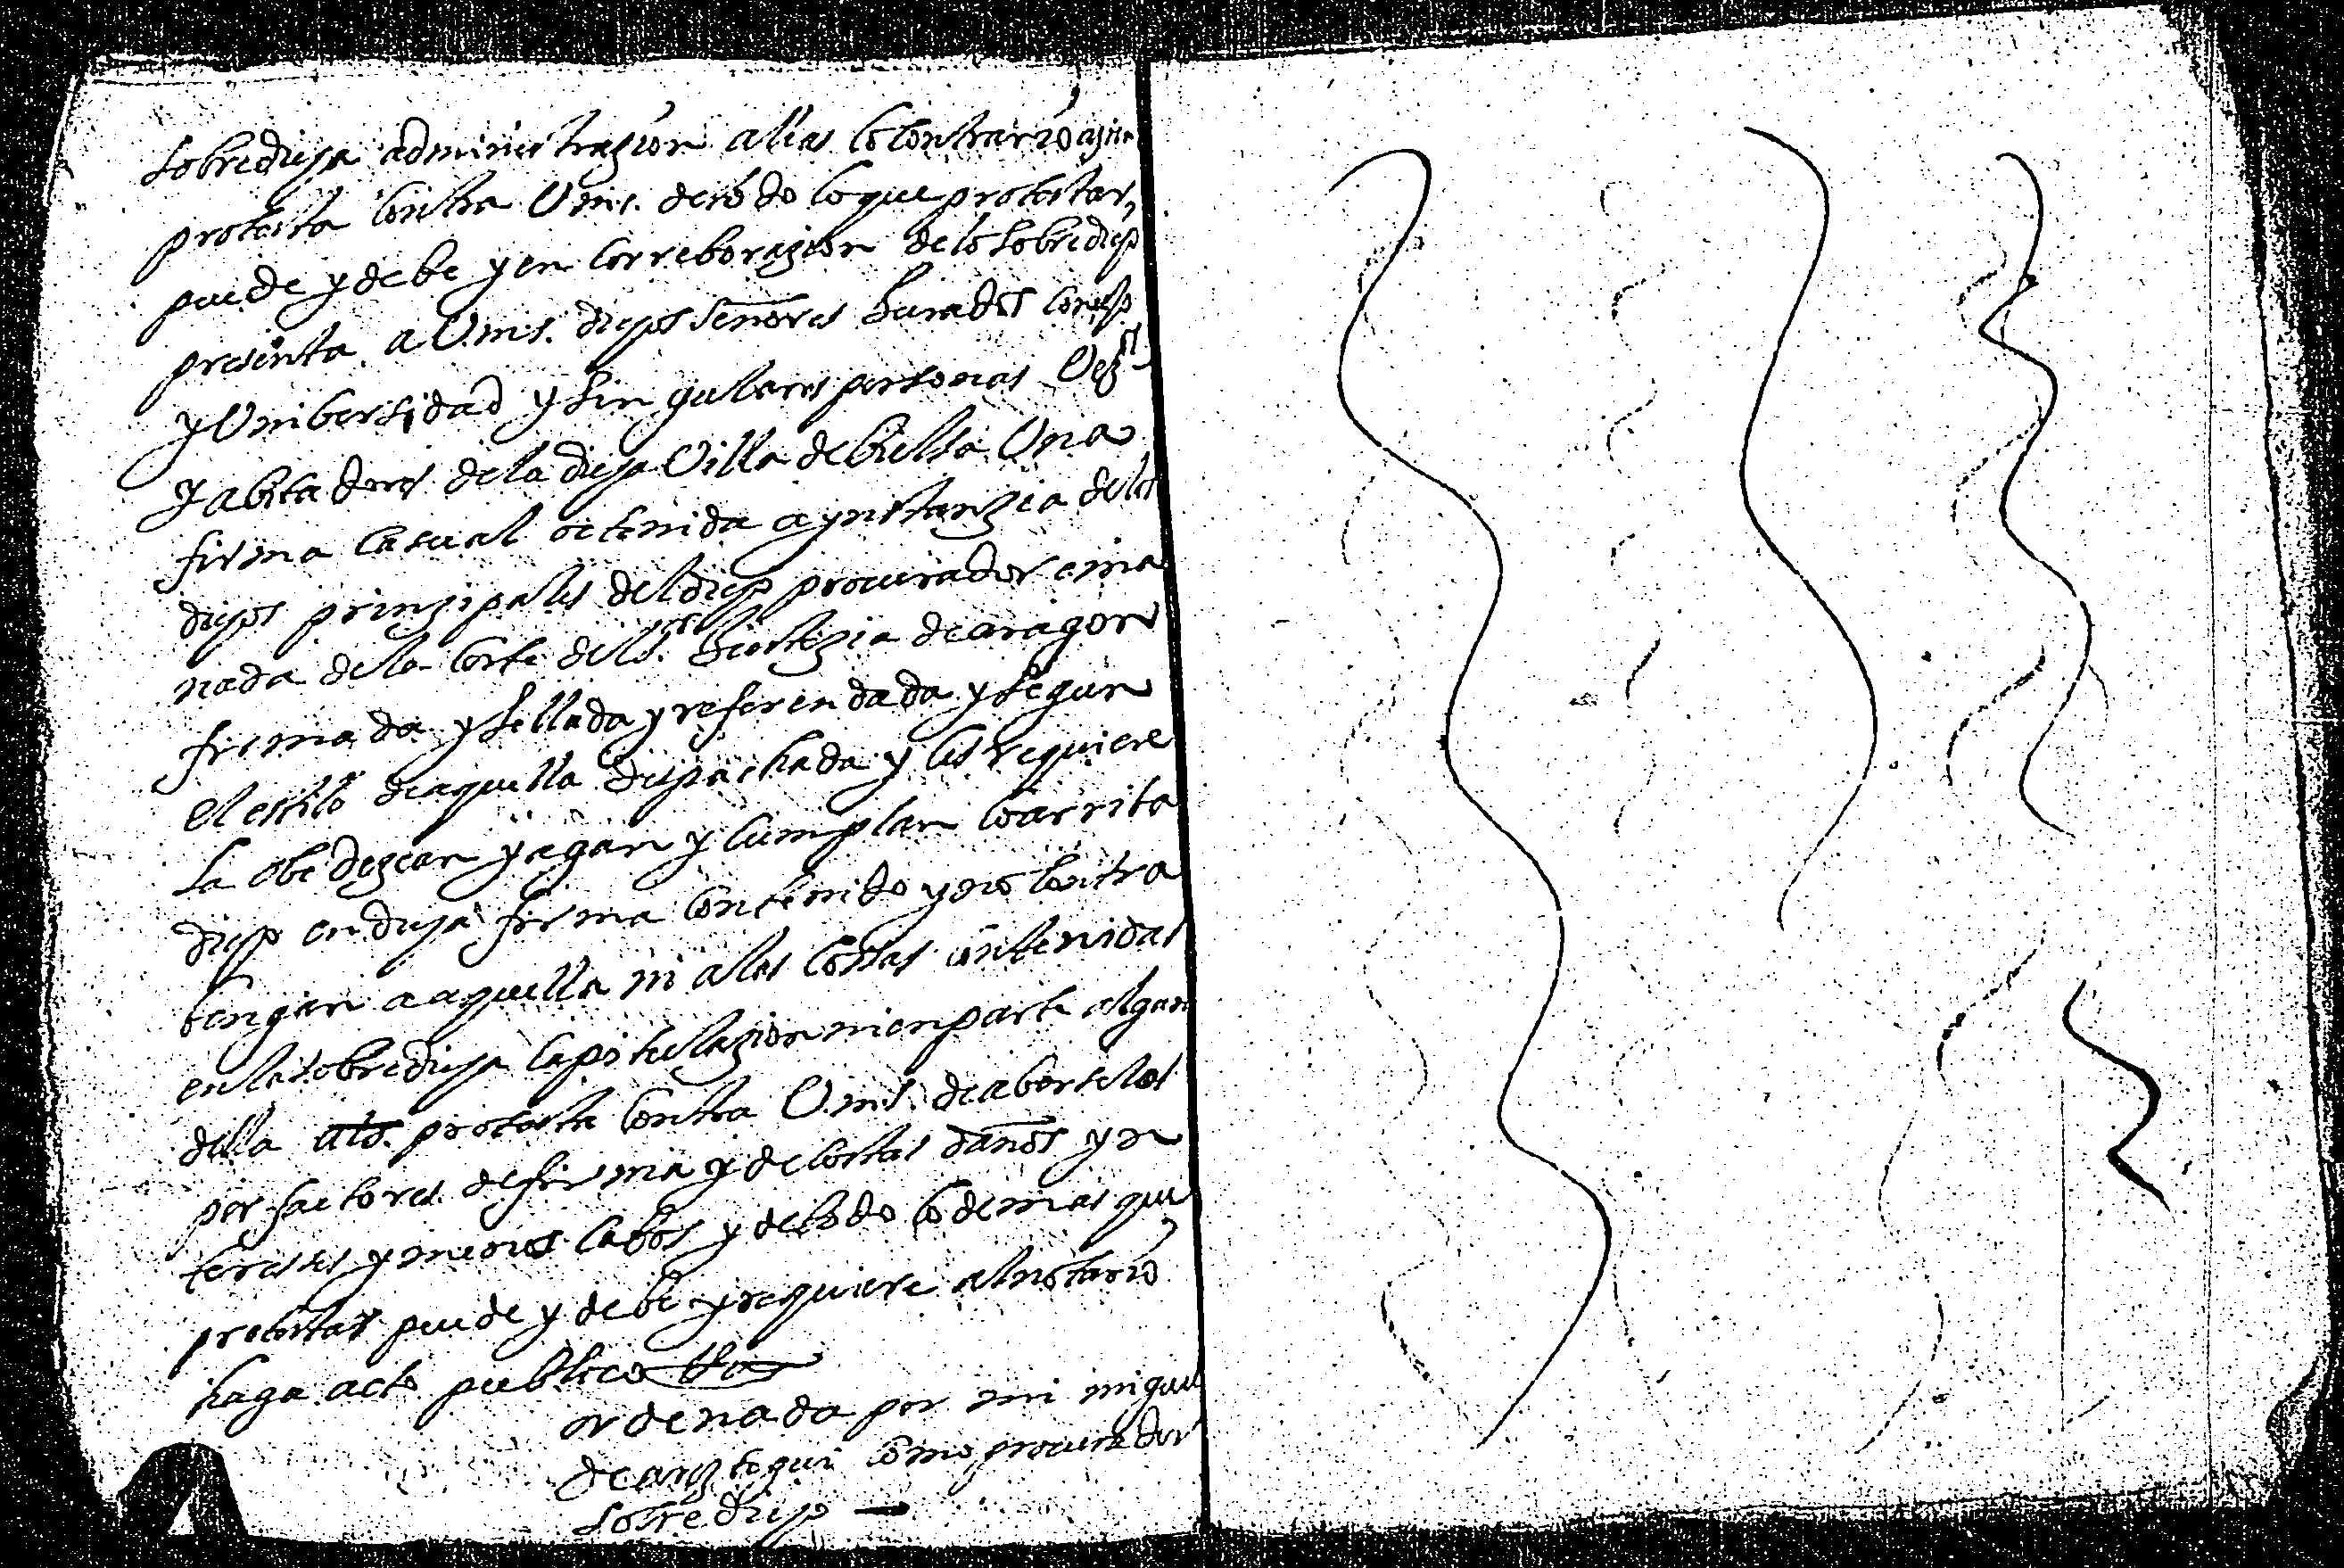 sobredicha administrazion alias lo contrario azien
protesta contra Vms. de todo lo que protestar
puede y debe y en correborazion de lo sobredicho
presenta a Vms. dichos señores Jurados conçejo
y Unibersidad y singulares personas Vezos
y abitadores de la dicha Villa de bielsa Una
firma casual octenida a ynstanzia de los
dichos prinzipales del dicho procurador ema
nada de la corte del Sr. Justizia de aragon
firmada y sellada y referendada y segun
el estilo de aquella despachada y les requiere
la obedezcan y agan y cumplan lo arriba
dicho en dicha firma contenido y no contra
bengan a aquella ni a las cossas contenidas
en la sobredicha capitulazion ni en parte alguna
della als. protesta contra Vms. de aberselos
por factores de firma y de costas daños yn
tereses y menos cabos y de todo lo demas que
protestar puede y debe y requiere al notario
haga acto publico
ordenada por mi miguel
de arizteguı como procurador
sobredicho